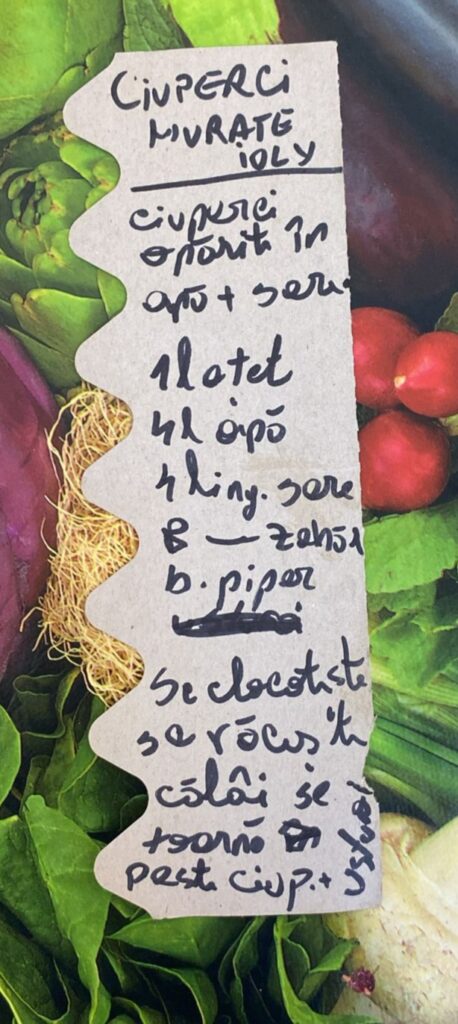 CIUPERCI
MURATE
IOLY
ciuperci
opărite în
apă + sare
1l oțet
4l apă
4 ling. sare
8 — zahăr
b. piper
Se clocotește
se răcește
călâi se
toarnă
peste ciup. + usturoi